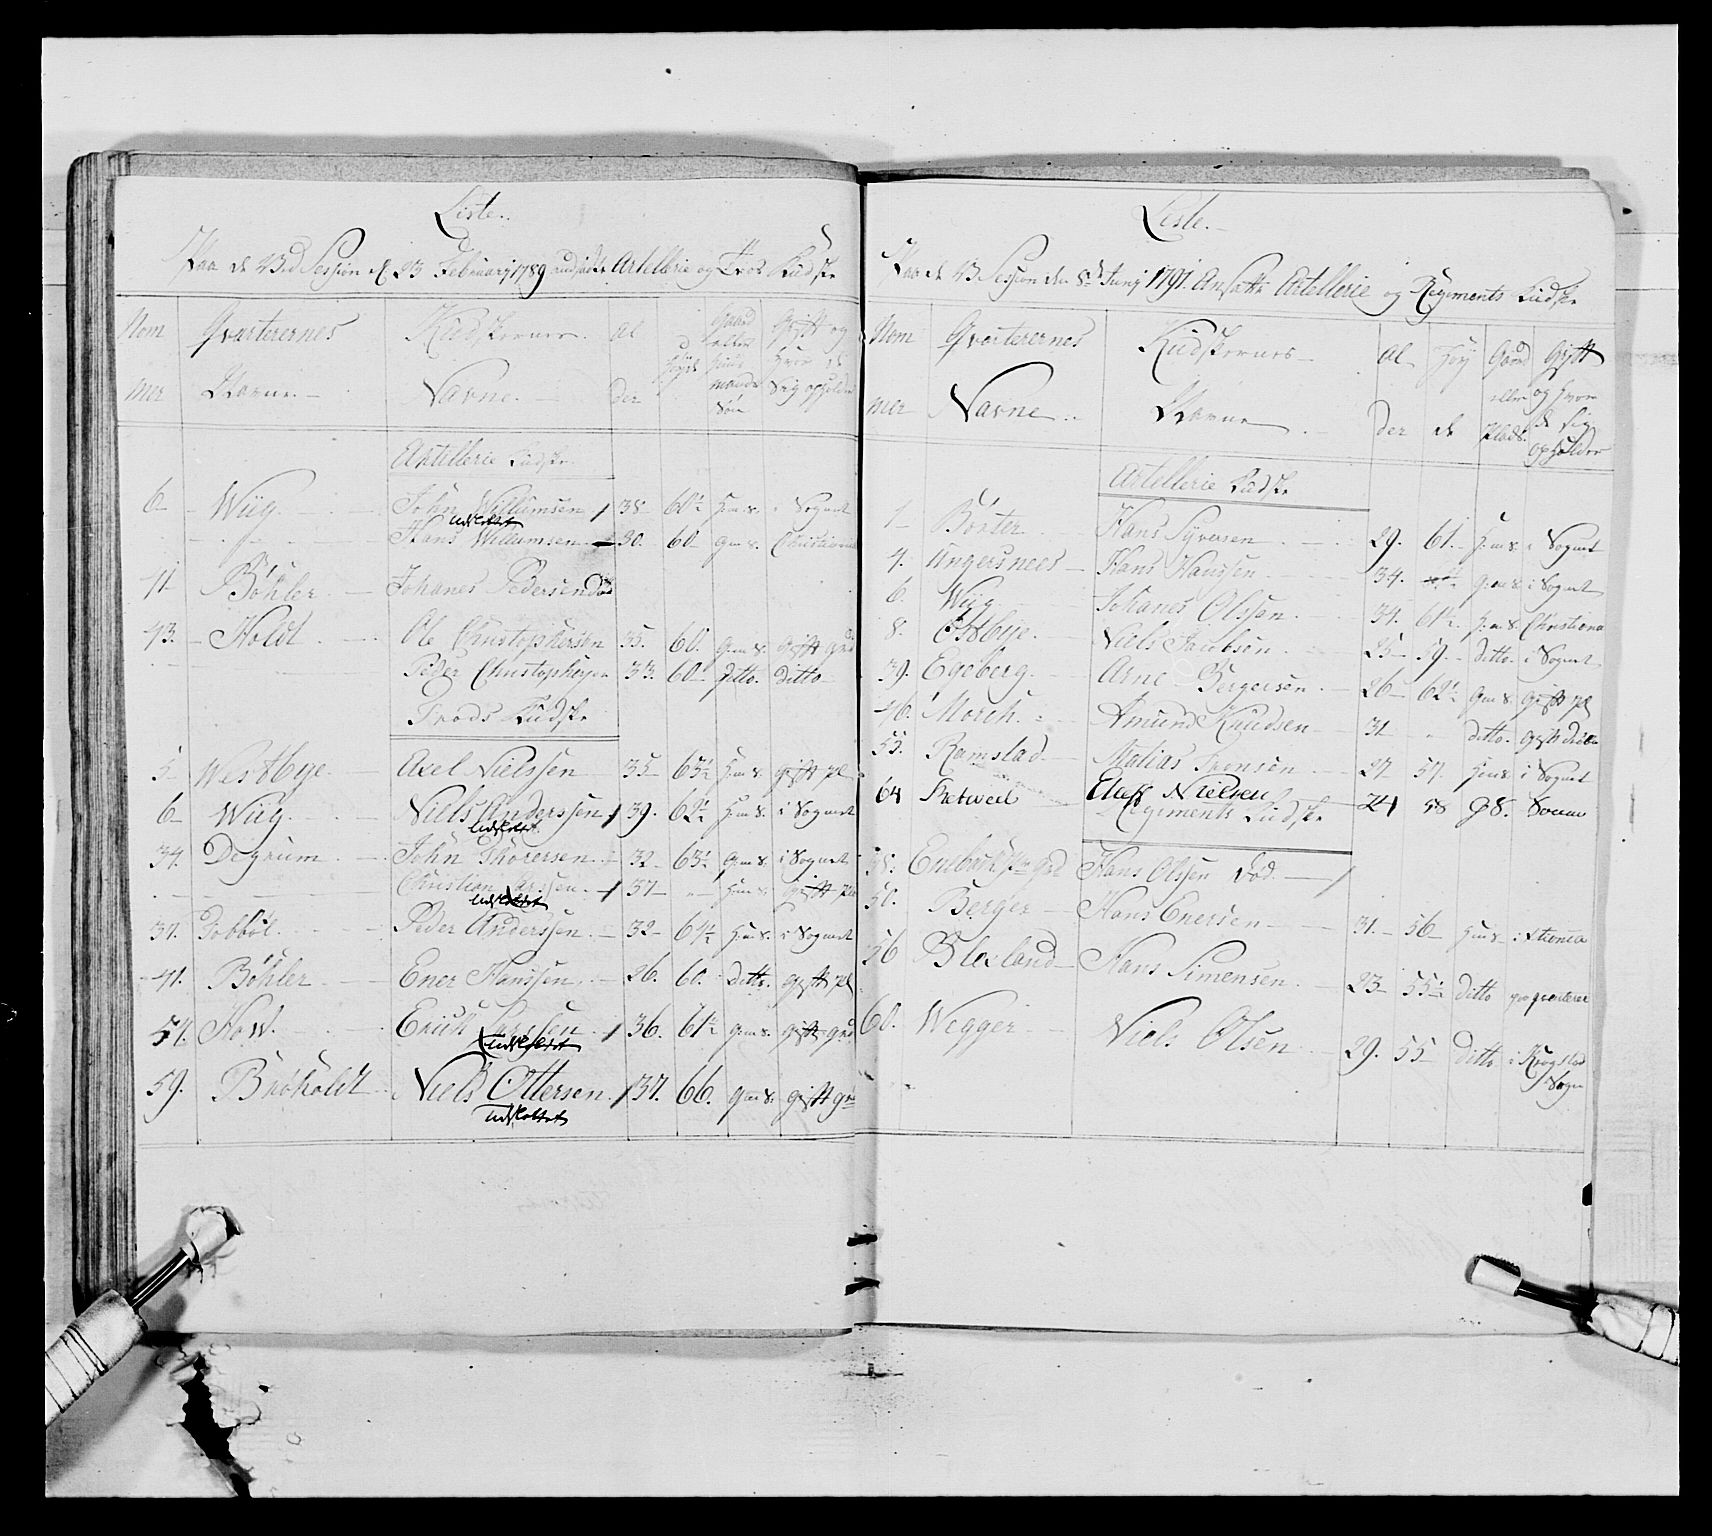 Liste.
Paa de ved Session d. 23 Februarj 1789 udsatte Artellerie og Tros Kudske
Nom mer
Qvarterernes Navne.
Kudskernes Navne.
Al der
Høyde
Gaard eller Huusmands Søn
Gift og hvor de sig opholder
Artellerie Kudske
6 Wiig. John Willumsen 38 60½ H.m.S. i Sognet
udsættet
Hans Willumsen 30. 60 G.m.S. Christiania
41 Bøhler Johanes Pedersen død
43. Holdt. Ole Christophersen 35. 60. G.m.S. gift grd
Peder Christophersen 33. 60 ditto. ditto
Trods Kudske
5 Westbye Axel Nielssen 35 63½ H.m.S. gift pl
6 Wiig. Niels Anderssen 39. 62½ H.m.S. i Sognet
udsættet
34. Degrum John Thorersen 32 63½ G.m.S. i Sognet
Christian Larssen 37 H.m.S. gift pl
udsættet
37. Peder Anderssen 32 64½ H.m.S. i Sognet
41. Bøhler Ener Hanssen 26. 60. ditto. gift pl
57. How. Erich Larssen 36. 61½ G.m.S. gift grd
udsættet
59. Brøholdt Niels Ottersen 37. 66. G.m.S. gift grd
udsættet
Liste.
Paa de ved Session den 8de Junj 1791. Ansatte Artellerie og Regiments Kudske
Nom mer
Qvarterernes Navne
Kudskernes Navne
Al der
Høy de
Gaard eller Plads.
Gift og hvor de sig opholder
Artellerie Kudske
1 Børter Hans Syversen 29. 61. H.m.S. i Sognet
4. Ungersnees Hans Hanssen 34. G.m.S. i Sognet
6. Wiig Johanes Olssen 34. 61½ H.m.S. Christiania
8. Østbye. Niels Jacobsen 25 59. ditto. i Sognet
39. Egeberg. Arne Bergersen 26 62½ G.m.S. gift pl
46. Morch. Amund Knudsen 31 ditto. gift ditto
55. Ramstad Matias Svensen 27 57. H.m.S. i Sognet
64 Nielsen 24 58 G S.
Regiments Kudske
Hans Olssen død
50. Berger Hans Enersen 31. 56 H.m.S. i Xtiania
56 Hans Simensen 23 55½ ditto paa qvarteret
60. Wegger Niels Olsen 29. 55 ditto i Krogstad Sogn